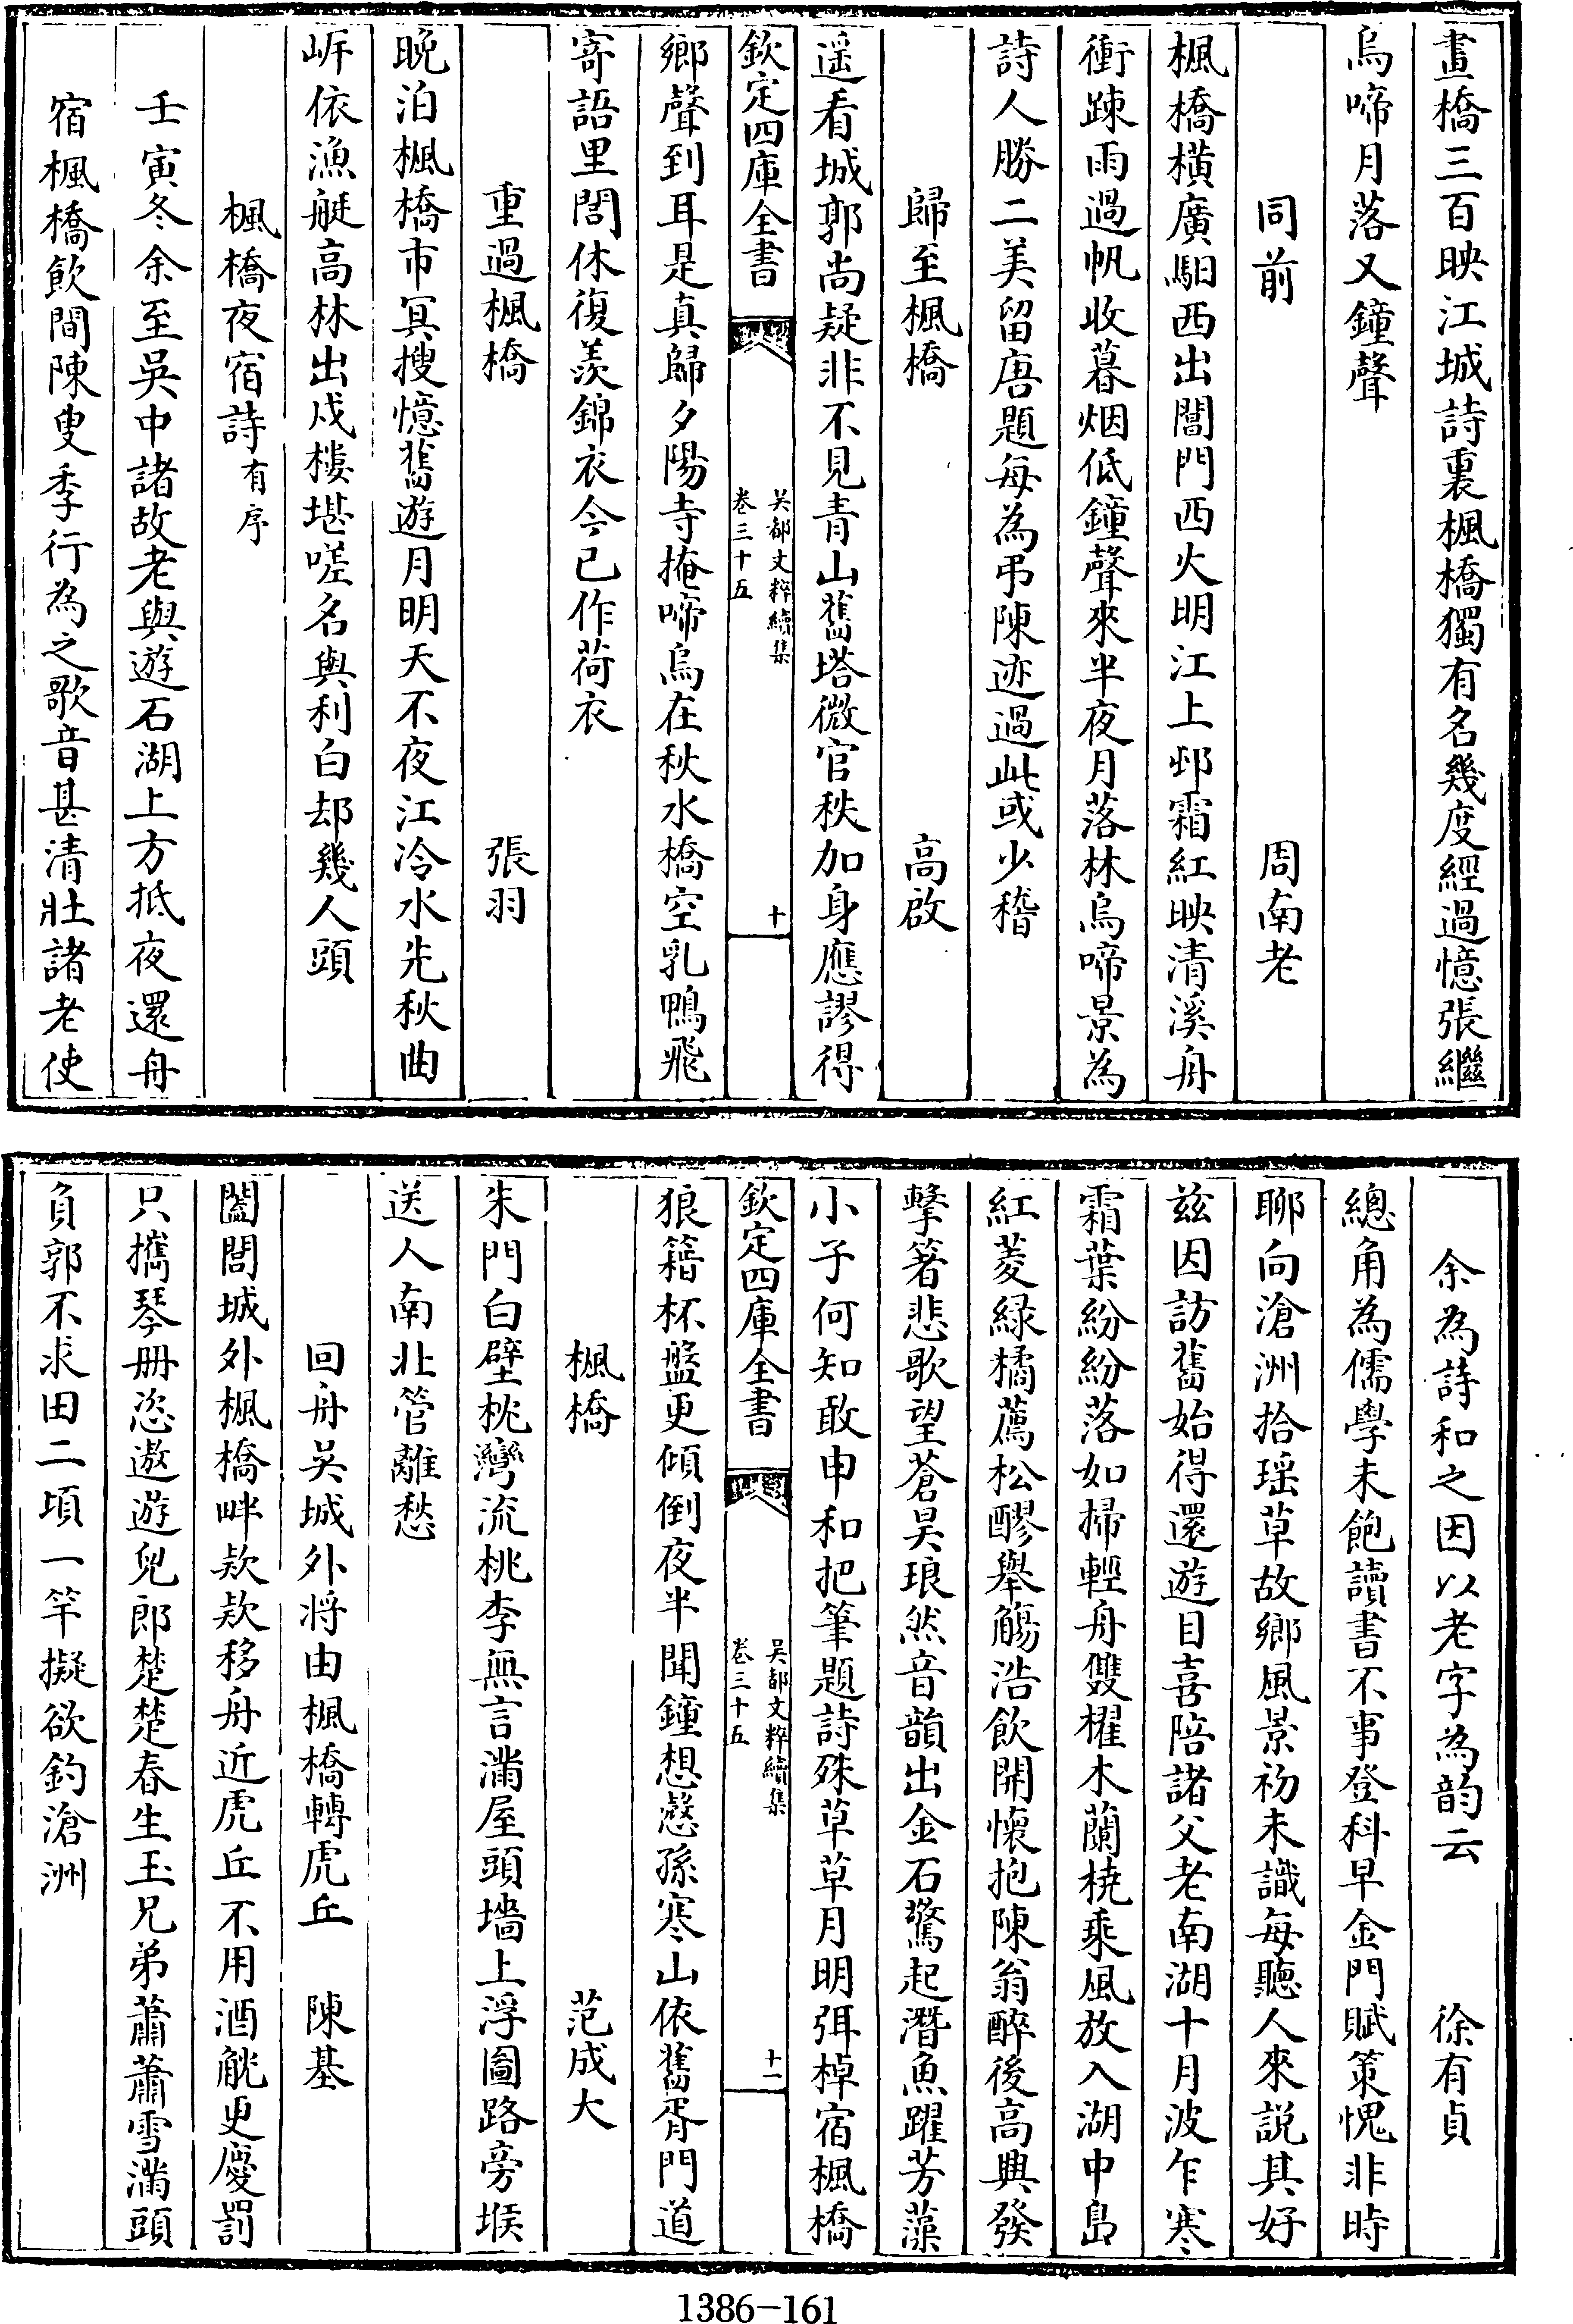 畫橋三百映江城詩裏楓橋獨有名幾度經過憶張繼
烏啼月落又鐘聲
同前 周南老
楓橋橫廣馹西出閶門西火明江上邨霜紅映清溪舟
衝踈雨過帆收暮烟低鐘聲來半夜月落林烏啼景為
詩人勝二美留唐題每為弔陳迹過此或少稽
歸至楓橋 高啟
遥看城郭尚疑非不見青山舊塔微官秩加身應謬得
欽定四庫全書 吳都文粹續集 卷三十五 十
鄉聲到耳是真歸夕陽寺掩啼烏在秋水橋空乳鴨飛
寄語里閭休復羨錦衣今已作荷衣
重過楓橋 張羽
晚泊楓橋市冥搜憶舊遊月明天不夜江冷水先秋曲
㟁依漁艇高林出戍樓堪嗟名與利白却幾人頭
楓橋夜宿詩有序
壬寅冬余至吳中諸故老與遊石湖上方抵夜還舟
宿楓橋飲間陳叟季行為之歌音甚清壯諸老使
余為詩和之因以老字為韵云 徐有貞
總角為儒學未飽讀書不事登科早金門賦策愧非時
聊向滄洲拾瑶草故鄉風景初未識每聽人來説其好
兹因訪舊始得還遊目喜陪諸父老南湖十月波乍寒
霜葉紛紛落如掃輕舟雙櫂木蘭橈乘風放入湖中島
紅菱緑橘薦松醪舉觴浩飲開懷抱陳翁醉後高興發
擊箸悲歌望蒼昊琅然音韻出金石驚起潛魚躍芳藻
小子何知敢申和把筆題詩殊草草月明弭棹宿楓橋
欽定四庫全書 吳都文粹續集 卷三十五 十一
狼籍杯盤更傾倒夜半聞鐘想懸孫寒山依舊胥門道
楓橋 范成大
朱門白壁枕灣流桃李無言滿屋頭墻上浮圖路旁堠
送人南北管離愁
回舟吳城外将由楓橋轉虎丘 陳基
闔閭城外楓橋畔欵欵移舟近虎丘不用酒觥更慶罰
只攜琴册恣遨遊兒郎楚楚春生玉兄弟蕭蕭雪滿頭
負郭不求田二頃一竿擬欲釣滄洲
1386-161